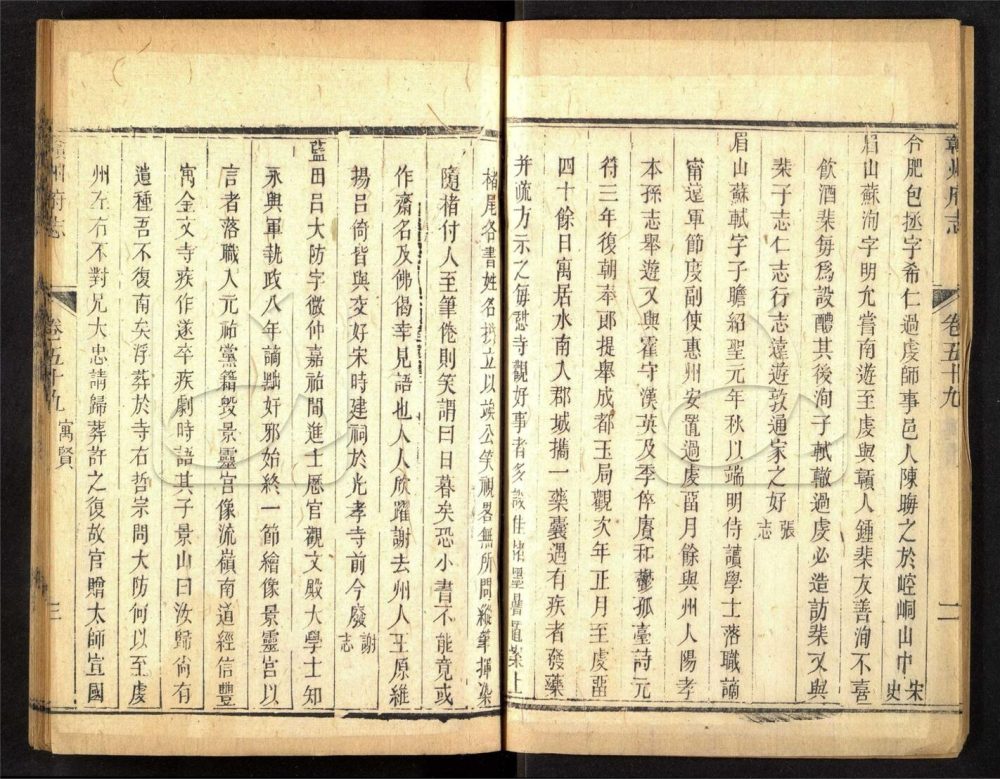 贛州府志 卷五十九 二
合肥包拯字希仁過虔師事邑人陳晦之於崆峒山中宋史
眉山蘇洵字明允嘗南遊至虔與贛人鍾棐友善洵不喜
飲酒棐每為設醴其後洵子軾轍過虔必造訪棐又與
棐子志仁志行志遠遊敦通家之好張志
眉山蘇軾字子瞻紹聖元年秋以端明侍讀學士落職謫
甯遠軍節度副使惠州安置過虔畱月餘與州人陽孝
本孫志舉遊又與霍守漢英及季倅賡和鬱孤臺詩元
符三年復朝奉郎提舉成都玉局觀次年正月至虔畱
四十餘日寓居水南入郡城攜一藥囊遇有疾者發藥
并疏方示之每憇寺觀好事者多設佳紙墨書置案上
楮尾各書姓名拱立以竢公笑視畧無所問縱筆揮染
隨楮付人至筆倦則笑謂曰日暮矣恐小書不能竟或
作齋名及佛偈幸見語也人人欣躍謝去州人王原維
揚呂倚皆與交好宋時建祠於光孝寺前今廢謝志
藍田呂大防字微仲嘉祐間進士歷官觀文殿大學士知
永興軍執政八年謫黜奸邪始終一節繪像景靈宮以
言者落職入元祐黨籍毀景靈宮像流嶺南道經信豐
寓金文寺疾作遂卒疾劇時語其子景山曰汝歸尚有
遺種吾不復南矣浮葬於寺右哲宗問大防何以至虔
州左右不對兄大忠請歸葬許之復故官贈太師宣國
贛州府志 卷五十九 寓賢 三